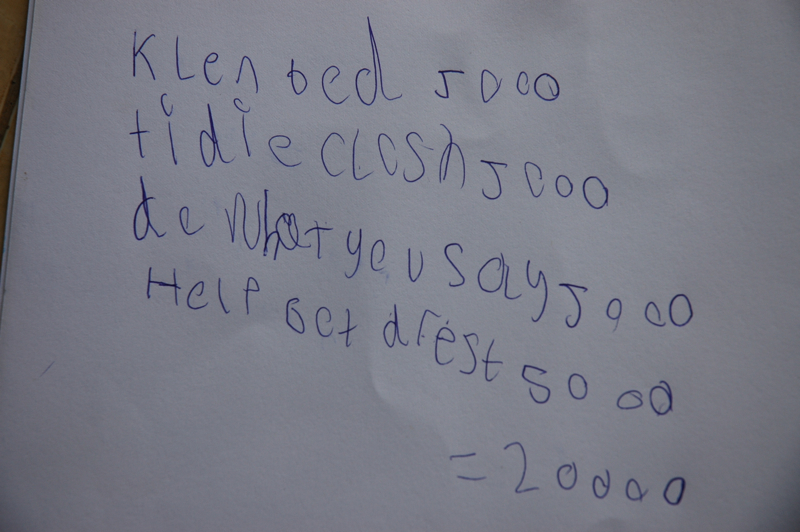 KLen bed 5000
tidie closh 5000
do What you say 5000
Help get drest 5000
= 20000